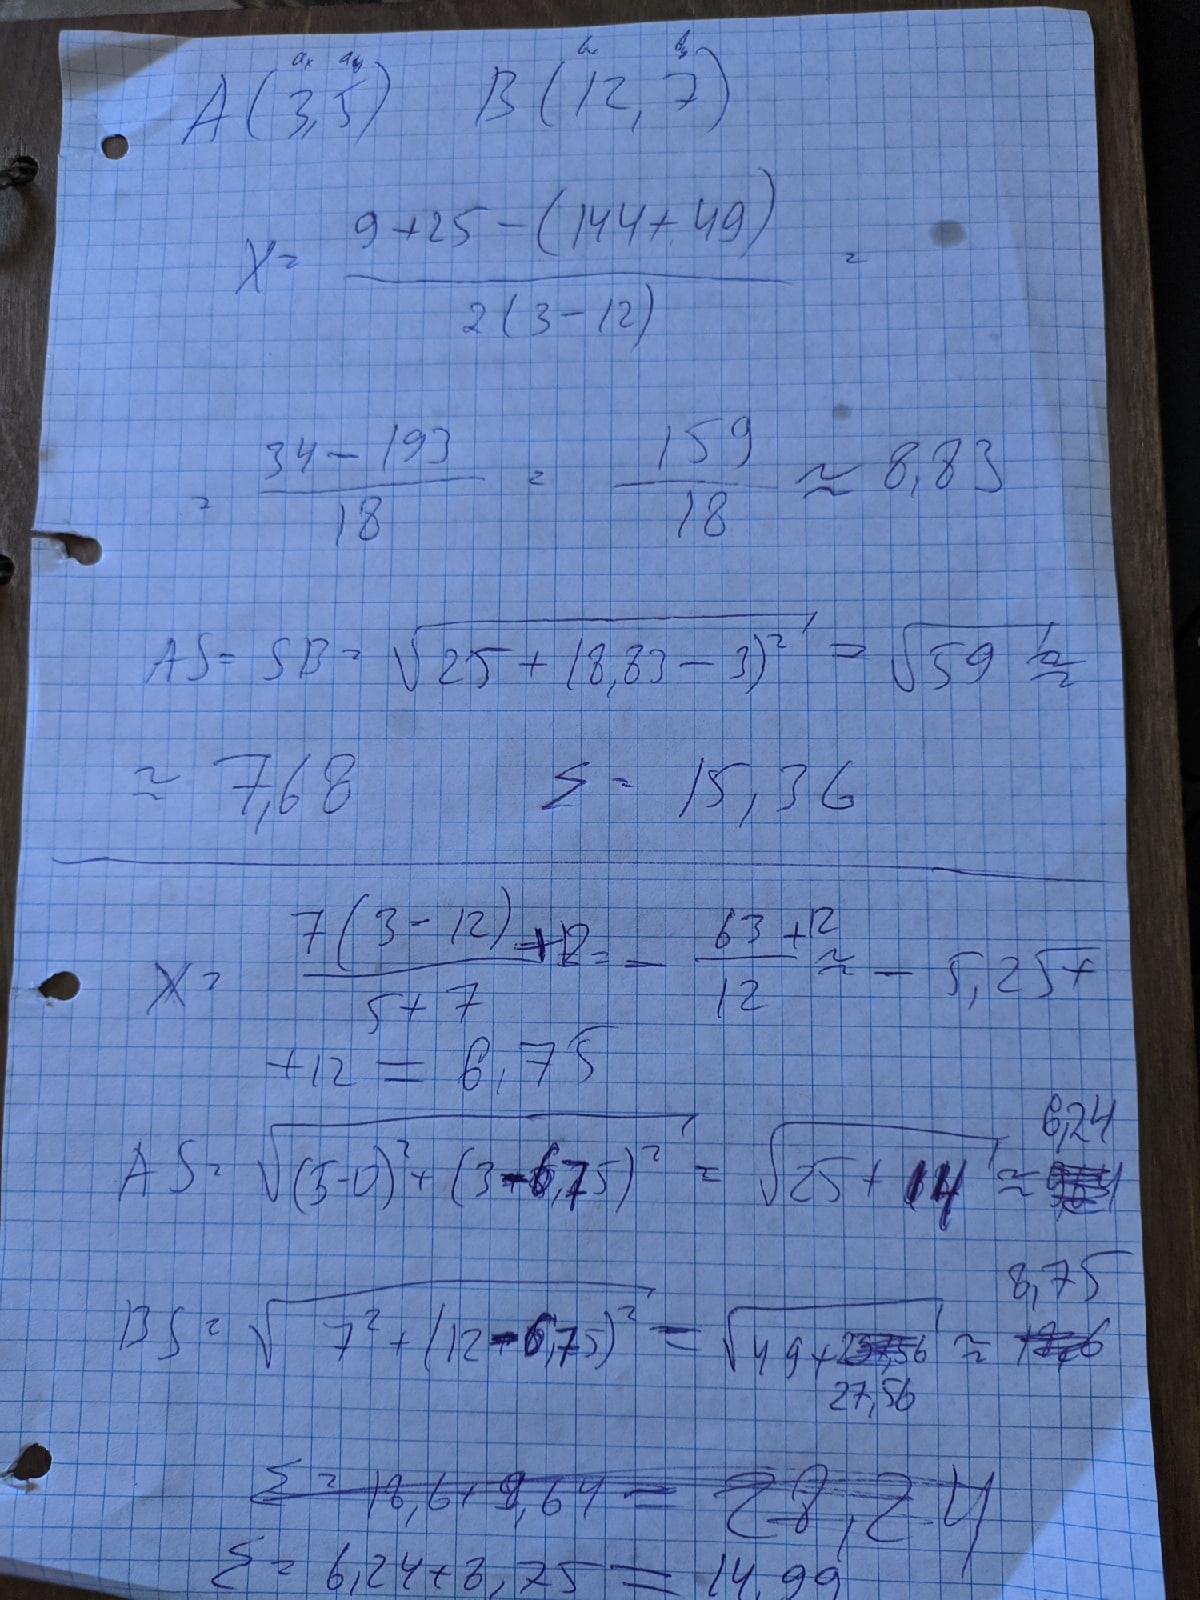 aₓ aᵧ b bᵧ
A(3,5) B(12,7)
X = (9+25-(144+49))/(2(3-12)) =
= (34-193)/18 = 159/18 ≈ 8,83
AS = SB = √(25+(8,83-3)²) = √59 ≈
≈ 7,68 S = 15,36
X = 7(3-12)/(5+7) +12 = - (63+12)/12 ≈ - 5,25+
+12 = 6,75
6,24
AS = √((5-0)²+(3-6,75)²) = √(25+14) ≈
8,75
BS = √(7²+(12-6,75)²) = √(49+ ≈
27,56
Σ = 18,6+9,64 = 28,24
Σ = 6,24+8,75 = 14,99